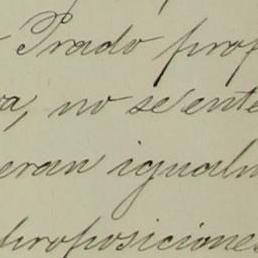 Prado prop
a, no se ente
eran igualm
proposiciones